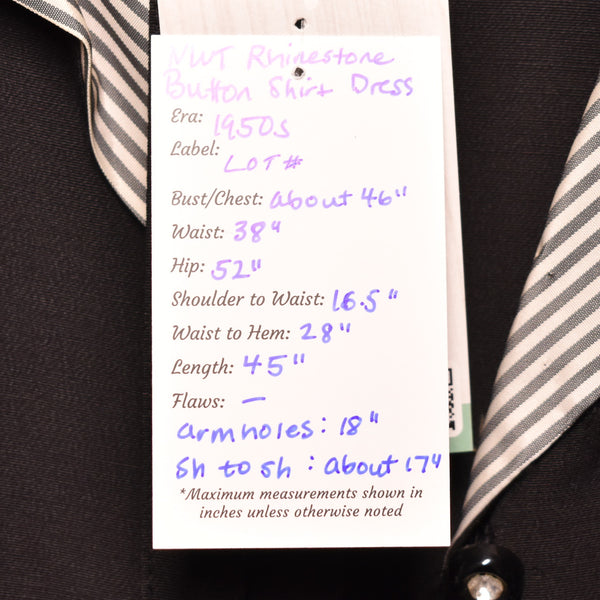 NWT Rhinestone
Button Shirt Dress
Era: 1950s
Label: LOT #
Bust/Chest: about 46"
Waist: 38"
Hip: 52"
Shoulder to Waist: 16.5"
Waist to Hem: 28"
Length: 45"
Flaws: —
armholes: 18"
Sh to sh: about 17"
*Maximum measurements shown in
inches unless otherwise noted